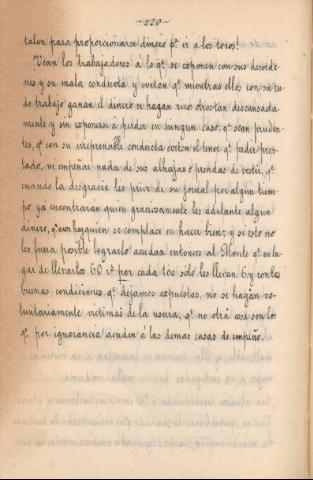 ~220~
talon para proporcionarse dinero p.ª ir a los toros!
Vean los trabajadores a lo q.e se exponen con sus desorde-
nes y su mala conducta y eviten q.e mientras ellos con su ru-
do trabajo ganan el dinero se hagan ricos otros tan descansada-
mente y sin exponerse á perder en ningun caso, q.e sean pruden-
tes, q.e con su irreprensible conducta eviten el tener q.e pedir pres-
tado, ni empeñar nada de sus alhajas o prendas de vestir, q.e
cuando la desgracia les prive de su jornal por algun tiem-
po, ya encontrarán quien graciosamente les adelante algun
dinero, q.e aun hay quien se complace en hacer bien; y si esto no
les fuera posible lograrlo acudan entonces al Monte q.e en lu-
gar de llevarlos 60 rs por cada 100 solo les llevan 6 y con las
buenas condiciones q.e dejamos expuestas, no se hagan vo-
luntariamente victimas de la usura, q.e no otra cosa son los
q.e por ignorancia acuden á las demas casas de empeño.